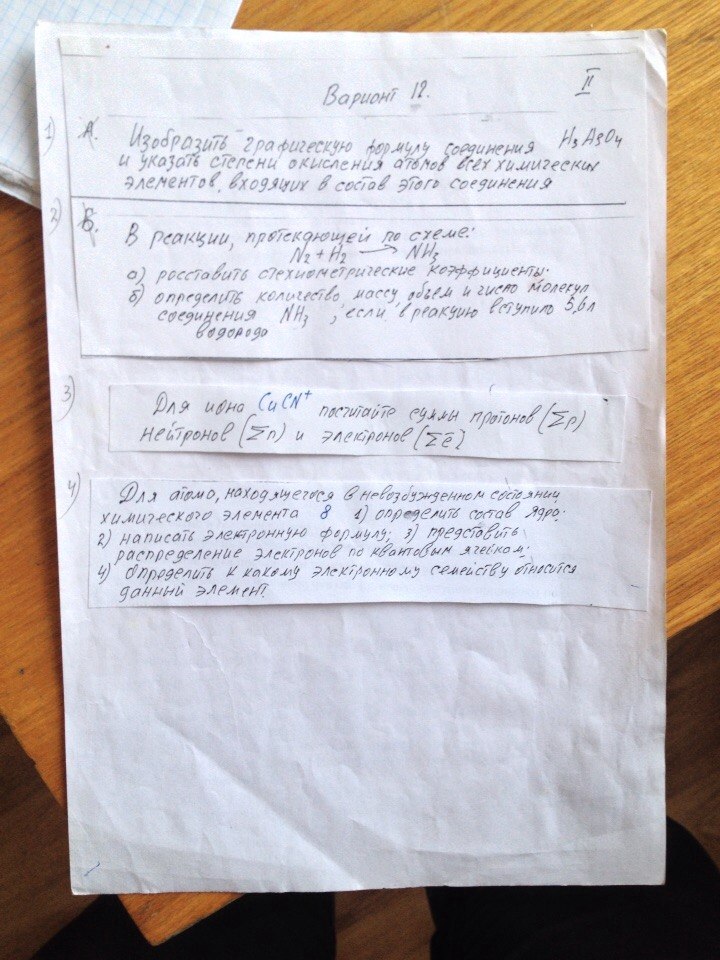 Вариант 12.
II
1) А. Изобразить графическую формулу соединения H3AsO4
и указать степени окисления атомов всех химических
элементов, входящих в состав этого соединения
2) Б. В реакции, протекающей по схеме:
N2 + H2 → NH3
а) расставить стехиометрические коэффициенты.
б) определить количество, массу, объем и число молекул
соединения NH3, если в реакцию вступило 5,6 л
водорода
3) Для иона CuCN+ посчитайте суммы протонов (Σp)
нейтронов (Σn) и электронов (Σē)
4) Для атома, находящегося в невозбужденном состоянии
химического элемента 8 1) определить состав ядра;
2) написать электронную формулу; 3) представить
распределение электронов по квантовым ячейкам;
4) определить к какому электронному семейству относится
данный элемент.